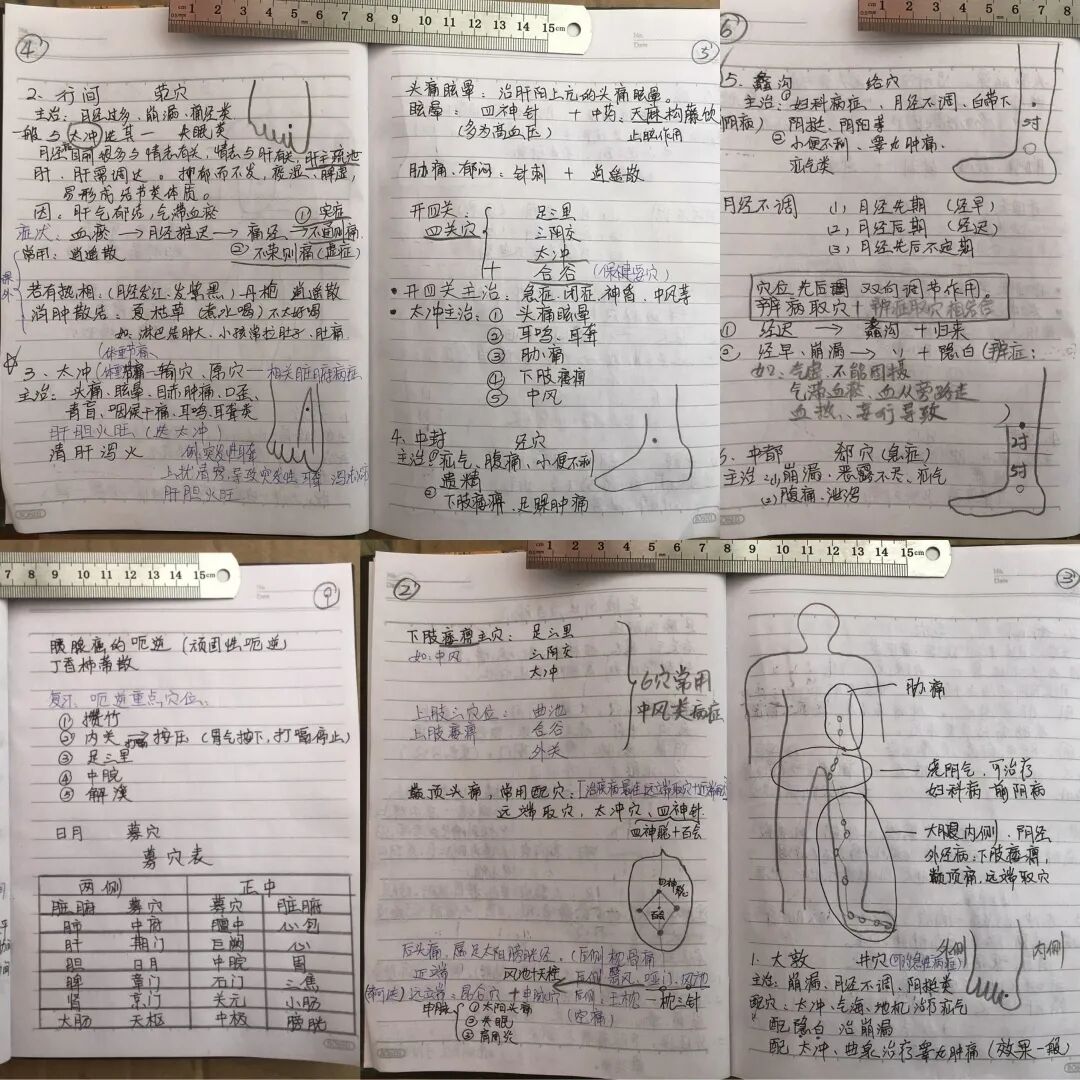 ④
2、行间 荥穴
主治：月经过多、崩漏、痛经类
一般与太冲选其一 失眠类
月经提前很多与情志有关，情志与肝有关，肝主疏泄
肝、肝需调达。抑郁而不发，
易形成结节类体质。
因：肝气郁结，气滞血瘀 ①实症
症状：血瘀→月经推迟→痛经→不通则痛
常用：逍遥散 ②不荣则痛（虚症）
课外
若有热相：（月经发红、发紫黑）丹栀逍遥散
消肿散结、夏枯草（煮水喝）不太好喝
如：淋巴结肿大、小孩常拉肚子、肚痛
（体重节痛）
3、太冲 输穴、原穴—相关脏腑病症
主治：头痛、眩晕、目赤肿痛、口歪、
青盲、咽候干痛、耳鸣、耳聋类
肝胆火旺（失太冲）
清肝泻火 例：突发性聋
上扰清窍，导致突发性耳聋
肝胆火旺
⑤
头痛眩晕：治肝阳上亢的头痛眩晕。
眩晕：四神针 + 中药、天麻构藤饮
（多为高血压） 止眩作用
胁痛、郁闷：针刺 + 逍遥散
开四关： 足三里
四关穴 三阴交
太冲
+ 合谷 （保健要穴）
开四关主治：急症、闭症、神昏、中风等
太冲主治：①头痛眩晕
②耳鸣、耳聋
③胁痛
④下肢痿痛
⑤中风
4、中封 经穴
主治：①疝气、腹痛、小便不利
遗精
②下肢痿痹、足踝肿痛
⑥
5、蠡沟 络穴
主治：①妇科病症、月经不调、白带下
（阴病） 阴挺、阴阳等
②小便不利、睾丸肿痛、
疝气类
5寸
月经不调 (1)月经先期（经早）
(2)月经后期（经迟）
(3)月经先后不定期
穴位先后调 双向调节作用。
辨病取穴+辨症取穴相结合
①经迟→蠡沟+归来
②经早、崩漏→〃+隐白（辨症：
如：气虚、不能固摄
气滞血瘀、血从旁路走
血热、妄行导致 ）
6、中都 郄穴（急症）
主治：(1)崩漏、恶露不尽、疝气
(2)腹痛、泄泻
2寸
5寸
⑨
胰腺癌的呃逆（顽固性呃逆）
丁香柿蒂散
复习：呃逆重点穴位：
①攒竹
②内关 打嗝→按压（胃气按下，打嗝停止）
③足三里
④中脘
⑤解溪
日月 募穴
募穴表
两侧 正中
脏腑 募穴 募穴 脏腑
肺 中府 膻中 心包
肝 期门 巨阙 心
胆 日月 中脘 胃
脾 章门 石门 三焦
肾 京门 关元 小肠
大肠 天枢 中极 膀胱
②
下肢痿痹主穴：足三里
如：中风 三阴交
太冲
6穴常用
中风类病症
上肢三穴位：曲池
上肢痿痹 合谷
外关
巅顶头痛，常用配穴：
远端取穴，太冲穴、四神针
四神聪+百会
四神聪
百会
后头痛，属足太阳膀胱经。（后侧枕骨痛
近端： 风池天柱 后侧翳风、哑门、风池
远端：昆仑穴+申脉穴 后侧：玉枕—枕三针
申脉 ①太阳头痛
②失眠
③肩周炎
③
胁痛
绕阴气，可治疗
妇科病 前阴病
大腿内侧、阴经
外经病：下肢痿痹，
巅顶痛，远端取穴
外侧 内侧
1、大敦 井穴
主治：崩漏、月经不调、阴挺类
配穴：太冲、气海、地机 治疗疝气
配隐白 治崩漏
配 太冲、曲泉治疗睾丸肿痛（效果一般）